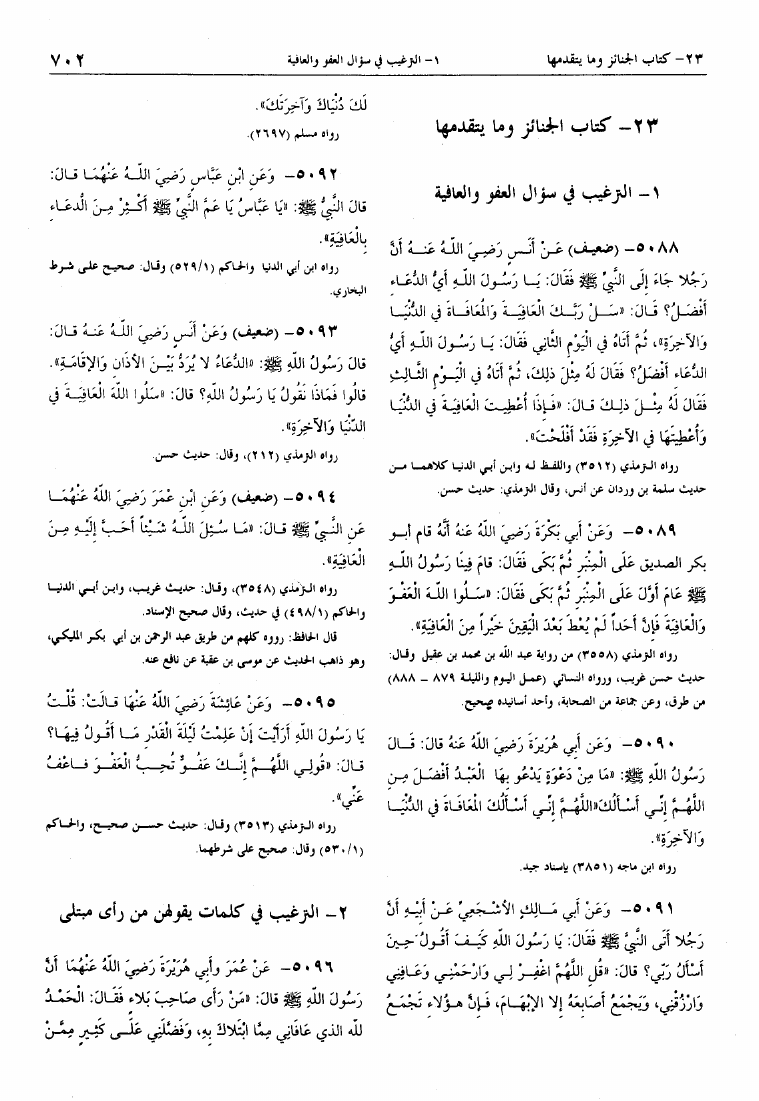 ٢٣- كتاب الجنائز وما يتقدمها
١- الترغيب في سؤال العفو والعافية
٧٠٢
٢٣- كتاب الجنائز وما يتقدمها
١- الترغيب في سؤال العفو والعافية
٥٠٨٨- (ضعيف) عَنْ أَنَسٍ رَضِيَ اللَّهُ عَنهُ أَنَّ
رَجُلا جَاءَ إِلَى النَّبِيِّ ﷺ فَقَالَ: يَا رَسُولَ اللهِ أَيُّ الدُّعَاءِ
أَفْضَلُ؟ قَالَ: «سَلْ رَبَّكَ الْعَافِيَةَ وَالْمُعَافَاةَ فِي الدُّنْيَا
وَالآخِرَةِ»، ثُمَّ أَتَاهُ فِي الْيَوْمِ الثَّانِي فَقَالَ: يَا رَسُولَ اللهِ أَيُّ
الدُّعَاءِ أَفْضَلُ؟ فَقَالَ لَهُ مِثْلَ ذلِكَ، ثُمَّ أَتَاهُ فِي الْيَوْمِ الثَّالِثِ
فَقَالَ لَهُ مِثْلَ ذلِكَ قَالَ: «فَإِذَا أُعْطِيتَ الْعَافِيَةَ فِي الدُّنْيَا
وَأُعْطِيتَهَا فِي الآخِرَةِ فَقَدْ أَفْلَحْتَ».
رواه الترمذي (٣٥١٢) واللفظ له وابن أبي الدنيا كلاهما من
حديث سلمة بن وردان عن أنس، وقال الترمذي: حديث حسن.
٥٠٨٩- وَعَنْ أَبِي بَكْرَةَ رَضِيَ اللهُ عَنهُ أَنَّهُ قام أبو
بكر الصديق عَلَى الْمِنْبَرِ ثُمَّ بَكَى فَقَالَ: قَامَ فِينَا رَسُولُ اللهِ
ﷺ عَامَ أَوَّلَ عَلَى الْمِنْبَرِ ثُمَّ بَكَى فَقَالَ: «سَلُوا اللهَ الْعَفْوَ
وَالْعَافِيَةَ فَإِنَّ أَحَداً لَمْ يُعْطَ بَعْدَ الْيَقِينِ خَيْراً مِنَ الْعَافِيَةِ».
رواه الترمذي (٣٥٥٨) من رواية عبد الله بن محمد بن عقيل وقال:
حديث حسن غريب، ورواه النسائي (عمل اليوم والليلة ٨٧٩ – ٨٨٨)
من طرق، وعن جماعة من الصحابة، وأحد أسانيده صحيح.
٥٠٩٠- وَعَن أَبِي هُرَيْرَةَ رَضِيَ اللهُ عَنهُ قَالَ: قَالَ
رَسُولُ اللهِ ﷺ: «مَا مِنْ دَعْوَةٍ يَدْعُو بِهَا الْعَبْدُ أَفْضَلَ مِنِ
اللَّهُمَّ إِنِّي أَسْأَلُكَ«اللَّهُمَّ إِنِّي أَسْأَلُكَ الْمُعَافَاةَ فِي الدُّنْيَا
وَالآخِرَةِ».
رواه ابن ماجه (٣٨٥١) بإسناد جيد.
٥٠٩١- وَعَنْ أَبِي مَالِكٍ الأَشْجَعِيِّ عَنْ أَبِيْهِ أَنَّ
رَجُلا أَتَى النَّبِيَّ ﷺ فَقَالَ: يَا رَسُولَ اللهِ كَيْفَ أَقُولُ حِينَ
أَسْأَلُ رَبِّي؟ قَالَ: «قُلِ اللَّهُمَّ اغْفِرْ لِي وَارْحَمْنِي وَعَافِنِي
وَارْزُقْنِي، وَيَجْمَعُ أَصَابِعَهُ إِلا الإِبْهَامَ، فَإِنَّ هؤُلاءِ تَجْمَعُ
لَكَ دُنْيَاكَ وَآخِرَتَكَ».
رواه مسلم (٢٦٩٧).
٥٠٩٢- وَعَنِ ابْنِ عَبَّاسٍ رَضِيَ اللَّهُ عَنْهُمَا قَالَ:
قالَ النَّبِيُّ ﷺ: «يَا عَبَّاسُ يَا عَمَّ النَّبِيِّ ﷺ أَكْثِرْ مِنَ الدُّعَاءِ
بِالْعَافِيَةِ».
رواه ابن أبي الدنيا والحاكم (٥٢٩/١) وقال: صحيح على شرط
البخاري.
٥٠٩٣- (ضعيف) وَعَنْ أَنَسٍ رَضِيَ اللَّهُ عَنهُ قَالَ:
قَالَ رَسُولُ اللهِ ﷺ: «الدُّعَاءُ لا يُرَدُّ بَيْنَ الأَذَانِ وَالإِقَامَةِ».
قَالُوا فَمَاذَا نَقُولُ يَا رَسُولَ اللهِ؟ قَالَ: «سَلُوا اللهَ الْعَافِيَةَ فِي
الدُّنْيَا وَالآخِرَةِ».
رواه الترمذي (٢١٢)، وقال: حديث حسن.
٥٠٩٤- (ضعيف) وَعَنِ ابْنِ عُمَرَ رَضِيَ اللهُ عَنْهُمَا
عَنِ النَّبِيِّ ﷺ قَالَ: «مَا سُئِلَ اللهُ شَيْئاً أَحَبَّ إِلَيْهِ مِنَ
الْعَافِيَةِ».
رواه الترمذي (٣٥٤٨)، وقال: حديث غريب، وابن أبي الدنيا
والحاكم (٤٩٨/١) في حديث، وقال صحيح الإسناد.
قال الحافظ: رووه كلهم من طريق عبد الرحمن بن أبي بكر المليكي،
وهو ذاهب الحديث عن موسى بن عقبة عن نافع عنه.
٥٠٩٥- وَعَنْ عَائِشَةَ رَضِيَ اللهُ عَنْهَا قَالَتْ: قُلْتُ
يَا رَسُولَ اللهِ أَرَأَيْتَ إِنْ عَلِمْتُ لَيْلَةَ الْقَدْرِ مَا أَقُولُ فِيهَا؟
قَالَ: «قُولِي اللَّهُمَّ إِنَّكَ عَفُوٌّ تُحِبُّ الْعَفْوَ فَاعْفُ
عَنِّي».
رواه الترمذي (٣٥١٣) وقال: حديث حسن صحيح، والحاكم
(٥٣٠/١) وقال: صحيح على شرطهما.
٢- الترغيب في كلمات يقولهن من رأى مبتلى
٥٠٩٦- عَنْ عُمَرَ وأَبِي هُرَيْرَةَ رَضِيَ اللهُ عَنْهُمَا أَنَّ
رَسُولَ اللهِ ﷺ قَالَ: «مَنْ رَأَى صَاحِبَ بَلاءٍ فَقَالَ: الْحَمْدُ
لله الذي عَافَانِي مِمَّا ابْتَلاكَ بِهِ، وَفَضَّلَنِي عَلَى كَثِيرٍ مِمَّنْ